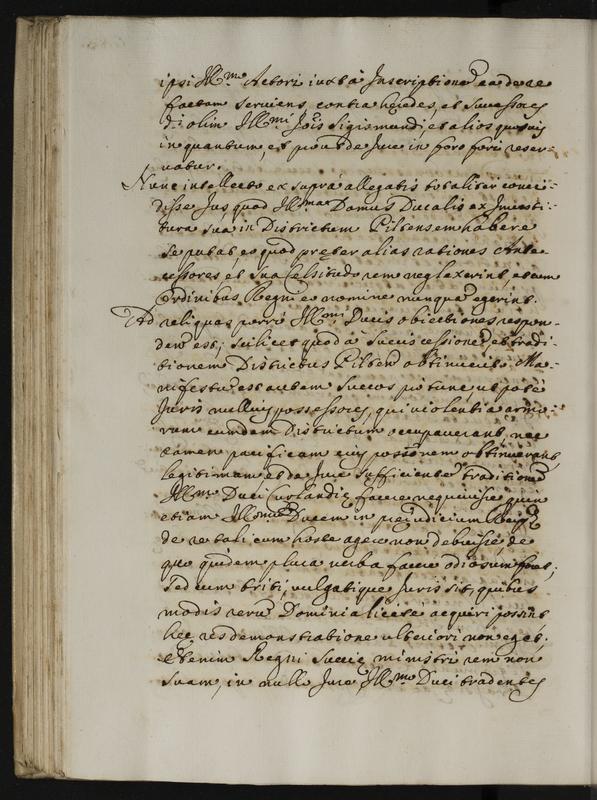 ipsi Illmo Actori iuxta Inscriptione ea de re
factam serviens, contra heredes, et Successores
olim Illmi Jois Sigismundi, et alios quosvis
in quantum, et prout de Jure in foro fori reser-
vatur.
Nunc intellecto ex supra allegatis totaliter conci-
disse Jus, quod Illma Domus Ducalis ex Investi-
tura sua in Districtum Piltensem habere
se putat eo quod præter alias rationes Ante-
cessores et sua Celsitudo rem neglexerint, et cum
Ordinibus Regni eo nomine nunqua egerint.
Ad reliquas porro Illmi Ducis obiectiones respon-
den est, scilicet quod a Succis cessione et tradi-
tionem Districtus Pilten obtinuerit. Ma-
nifestu est autem Succos pro tunc, utpote
Juris nullius possessores, qui violentia armo-
rum eundem Districtum occupaverant, nec
tamen pacificam eius posionem obtinuerant,
legitimam et de Jure sufficiente traditione
Illmo Duci Curlandiæ facere nequivisse quin
etiam Illmum Ducem in præjudicium Reipcæ
de re tali cum hoste agere non debuisse, de
quo quidem plura verba facere odiosum foret,
Sed cum triti, vulgatique Juris sit, quibus
modis reru Dominia licite acquiri possint
hec res demonstratione ulteriori non eget.
Etenim Regni Succiæ ministri rem non
suam, in nullo Jure Illmo Duci tradentes